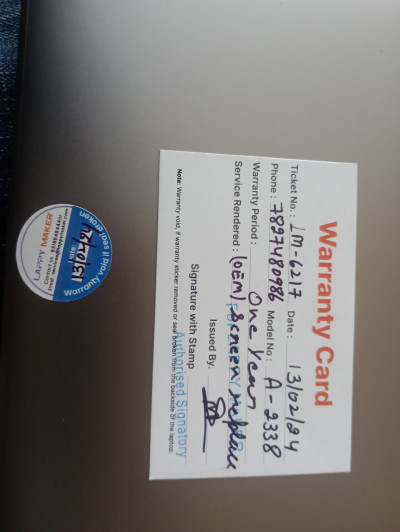 Warranty Card
Ticket No.: LM-6217 Date: 13/02/24
Phone: 7827480986 Model No: A-2338
Warranty Period: One Year
Service Rendered: (OEM) Screen replace
Issued By.
Signature with Stamp
Authorised Signatory
Note: Warranty void, if warranty sticker removed or seal broken from the backside of the laptop.
Warranty void if seal broken
LAPPY MAKER